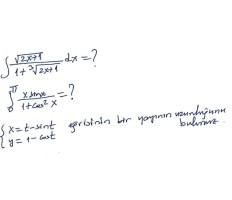 ∫ √(2x+1) / (1 + ³√(2x+1)) dx = ?
∫₀^π x sinx / (1 + cos² x) = ?
{ x = t - sint eğrisinin bir yayının uzunluğunu
{ y = 1 - cost bulunuz.